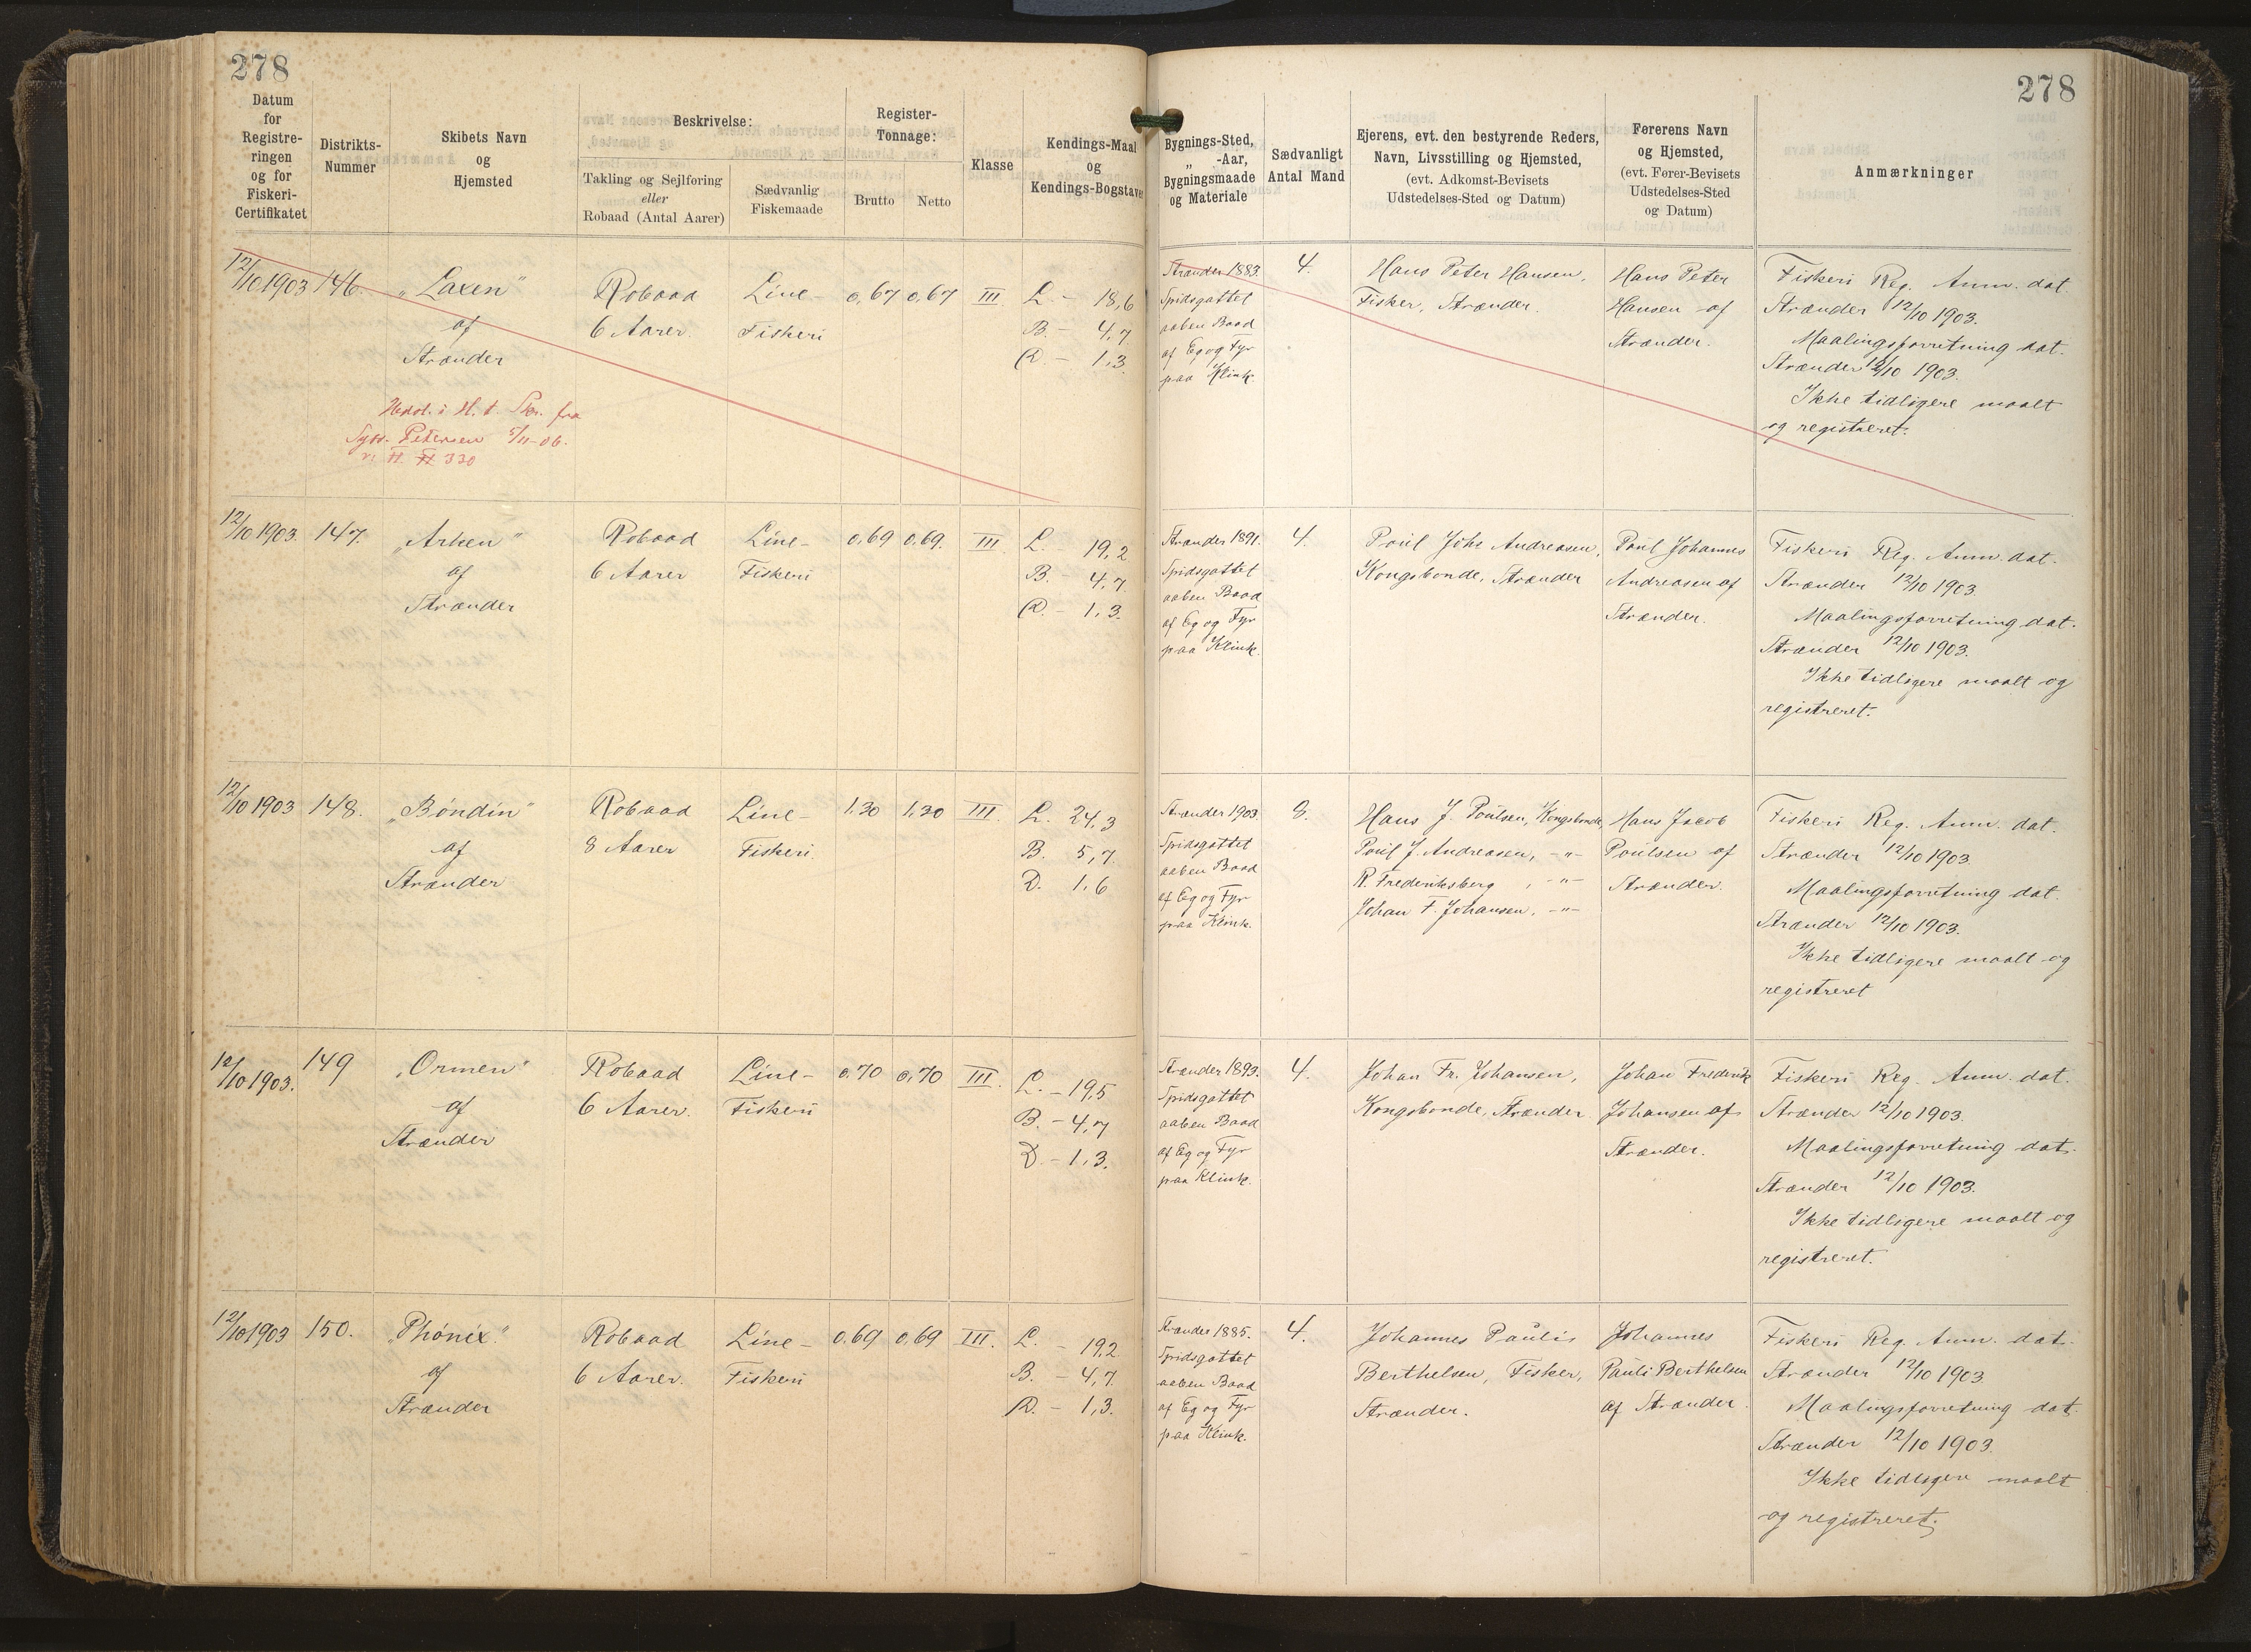 278
278
Datum for Registreringen og for Fiskeri-Certifikatet
Distrikts-Nummer
Skibets Navn og Hjemsted
Beskrivelse:
Takling og Sejlføring eller Robaad (Antal Aarer)
Sædvanlig Fiskemaade
Register-Tonnage:
Brutto
Netto
Klasse
Kendings-Maal og Kendings-Bogstaver
Bygnings-Sted, „ -Aar, Bygningsmaade og Materiale
Sædvanligt Antal Mand
Ejerens, evt. den bestyrende Reders, Navn, Livsstilling og Hjemsted, (evt. Adkomst-Bevisets Udstedelses-Sted og Datum)
Førerens Navn og Hjemsted, (evt. Fører-Bevisets Udstedelses-Sted og Datum)
Anmærkninger
12/10 1903
146.
„Laxen"
af
Strænder
Robaad
6 Aarer.
Line-
Fiskeri
0,67
0,67
III
L. - 18,6
B. - 4,7
D. - 1,3.
Strænder 1883.
Spidsgattet
aaben Baad
af Eg og Fyr
paa Klink.
4.
Hans Peter Hansen,
Fisker, Strænder.
Hans Peter
Hansen af
Strænder.
Fiskeri Reg. Anm. dat.
Strænder 12/10 1903.
Maalingsforretning dat.
Strænder 12/10 1903.
Ikke tidligere maalt
og registreret.
i H. t. Skr. fra
Petersen 5/11-06.
330
12/10 1903.
147.
„Arken"
af
Strænder
Robaad
6 Aarer
Line-
Fiskeri
0,69
0,69.
III
L. - 19,2
B. - 4,7
D. - 1,3.
Strænder 1891.
Spidsgattet
aaben Baad
af Eg og Fyr
paa Klink.
4.
Poul Johs Andreasen,
Kongsbonde, Strænder
Poul Johannes
Andreasen af
Strænder.
Fiskeri Reg. Anm. dat.
Strænder 12/10 1903.
Maalingsforretning dat.
Strænder 12/10 1903.
Ikke tidligere maalt og
registreret.
12/10 1903
148.
„Bóndin"
af
Strænder
Robaad
8 Aarer
Line-
Fiskeri.
1,30
1,30
III.
L. 24,3
B. 5,7
D. 1,6
Strænder 1903.
Spidsgattet
aaben Baad
af Eg og Fyr
paa Klink.
8.
Hans J. Poulsen, Kongsbonde,
Poul J. Andreasen, -"-
R. Frederiksberg, -"-
Johan F. Johansen, -"-
Hans Jacob
Poulsen af
Strænder.
Fiskeri Reg. Anm. dat.
Strænder 12/10 1903.
Maalingsforretning dat.
Strænder 12/10 1903.
Ikke tidligere maalt og
registreret
12/10 1903.
149
„Ormen"
af
Strænder
Robaad
6 Aarer.
Line-
Fiskeri
0,70
0,70
III.
L. - 19,5
B. - 4,7
D. - 1,3.
Strænder 1893.
Spidsgattet
aaben Baad
af Eg og Fyr
paa Klink.
4.
Johan Fr. Johansen,
Kongsbonde, Strænder.
Johan Frederik
Johansen af
Strænder.
Fiskeri Reg. Anm. dat.
Strænder 12/10 1903.
Maalingsforretning dat.
Strænder 12/10 1903.
Ikke tidligere maalt og
registreret.
12/10 1903
150.
„Phónix"
af
Strænder
Robaad
6 Aarer.
Line-
Fiskeri
0,69
0,69
III.
L. - 19,2
B. - 4,7
D. - 1,3.
Strænder 1885.
Spidsgattet
aaben Baad
af Eg og Fyr
paa Klink.
4.
Johannes Paulis
Berthelsen, Fisker,
Strænder.
Johannes
Pauli Berthelsen
af Strænder.
Fiskeri Reg. Anm. dat.
Strænder 12/10 1903.
Maalingsforretning dat.
Strænder 12/10 1903.
Ikke tidligere maalt
og registreret.